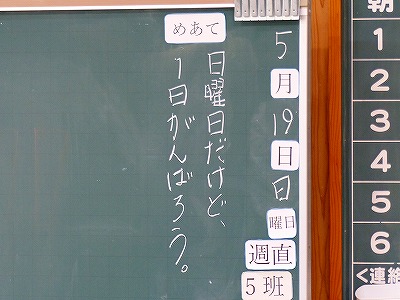 朝
1
2
3
4
5
6
<連絡
5月19日日曜日
週直
5班
めあて
日曜日だけど、
1日がんばろう。